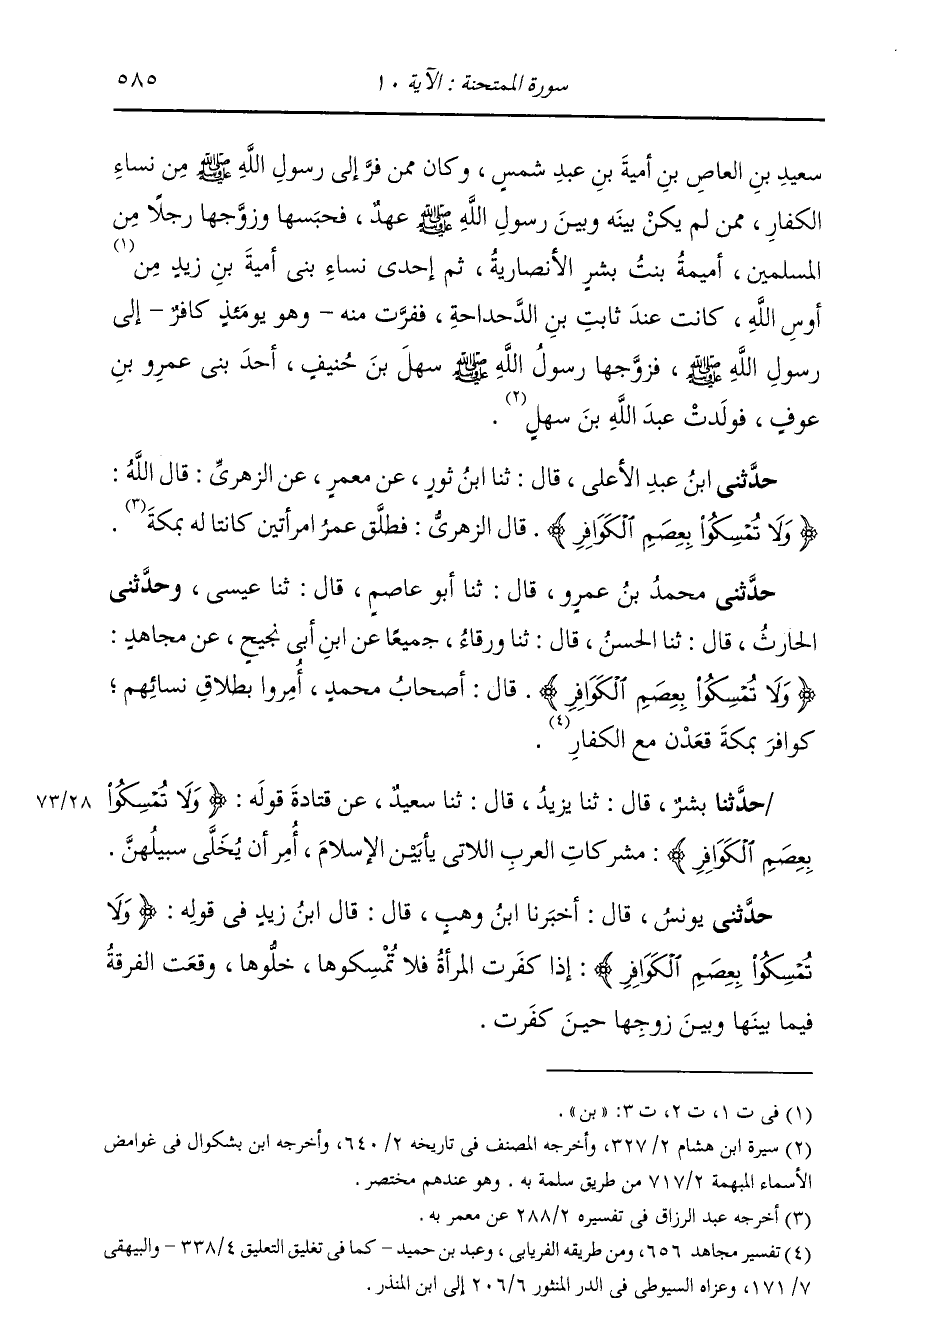 سورة الممتحنة : الآية ١٠ ٥٨٥
سعيدِ بنِ العاصِ بنِ أميةَ بنِ عبدِ شمسٍ ، وكان ممن فرَّ إلى رسولِ اللَّهِ ﷺ مِن نساءِ
الكفارِ ، ممن لم يكنْ بينَه وبينَ رسولِ اللَّهِ ﷺ عهدٌ ، فحبَسها وزوَّجها رجلًا مِن
المسلمين ، أميمةُ بنتُ بشرٍ الأنصاريةُ ، ثم إحدى نساءِ بنى أميةَ بنِ زيدٍ مِن(١)
أوسِ اللَّهِ ، كانت عندَ ثابتِ بنِ الدَّحداحةِ ، ففرَّت منه – وهو يومَئذٍ كافرٌ – إلى
رسولِ اللَّهِ ﷺ ، فزوَّجها رسولُ اللَّهِ ﷺ سهلَ بنَ حُنيفٍ ، أحدَ بنى عمرِو بنِ
عوفٍ ، فولَدتْ عبدَ اللَّهِ بنَ سهلٍ(٢) .
حدَّثنى ابنُ عبدِ الأعلى ، قال : ثنا ابنُ ثورٍ ، عن معمرٍ ، عن الزهرىِّ : قال اللَّهُ :
﴿ وَلَا تُمْسِكُواْ بِعِصَمِ ٱلْكَوَافِرِ ﴾ . قال الزهرىُّ : فطلَّق عمرُ امرأتين كانتا له بمكةَ(٣) .
حدَّثنى محمدُ بنُ عمرٍو ، قال : ثنا أبو عاصمٍ ، قال : ثنا عيسى ، وحدَّثنى
الحارثُ ، قال : ثنا الحسنُ ، قال : ثنا ورقاءُ ، جميعًا عن ابنِ أبى نجيحٍ ، عن مجاهدٍ :
﴿ وَلَا تُمْسِكُواْ بِعِصَمِ ٱلْكَوَافِرِ ﴾ . قال : أصحابُ محمدٍ ، أُمِروا بطلاقِ نسائِهم ؛
كوافرَ بمكةَ قعَدْن مع الكفارِ(٤) .
/حدَّثنا بشرٌ ، قال : ثنا يزيدُ ، قال : ثنا سعيدٌ ، عن قتادةَ قولَه : ﴿ وَلَا تُمْسِكُواْ ٧٣/٢٨
بِعِصَمِ ٱلْكَوَافِرِ ﴾ : مشركاتِ العربِ اللاتى يأبَيْن الإسلامَ ، أُمِر أن يُخَلَّى سبيلُهنَّ .
حدَّثنى يونسُ ، قال : أخبَرنا ابنُ وهبٍ ، قال : قال ابنُ زيدٍ فى قولِه : ﴿ وَلَا
تُمْسِكُواْ بِعِصَمِ ٱلْكَوَافِرِ ﴾ : إذا كفَرت المرأةُ فلا تُمْسِكوها ، خلُّوها ، وقعَت الفرقةُ
فيما بينَها وبينَ زوجِها حينَ كفَرت .
(١) فى ت ١، ت ٢، ت ٣: «بن» .
(٢) سيرة ابن هشام ٣٢٧/٢، وأخرجه المصنف فى تاريخه ٦٤٠/٢، وأخرجه ابن بشكوال فى غوامض
الأسماء المبهمة ٧١٧/٢ من طريق سلمة به . وهو عندهم مختصر .
(٣) أخرجه عبد الرزاق فى تفسيره ٢٨٨/٢ عن معمر به .
(٤) تفسير مجاهد ٦٥٦، ومن طريقه الفريابى ، وعبد بن حميد – كما فى تغليق التعليق ٣٣٨/٤ – والبيهقى
٧/ ١٧١، وعزاه السيوطى فى الدر المنثور ٢٠٦/٦ إلى ابن المنذر .